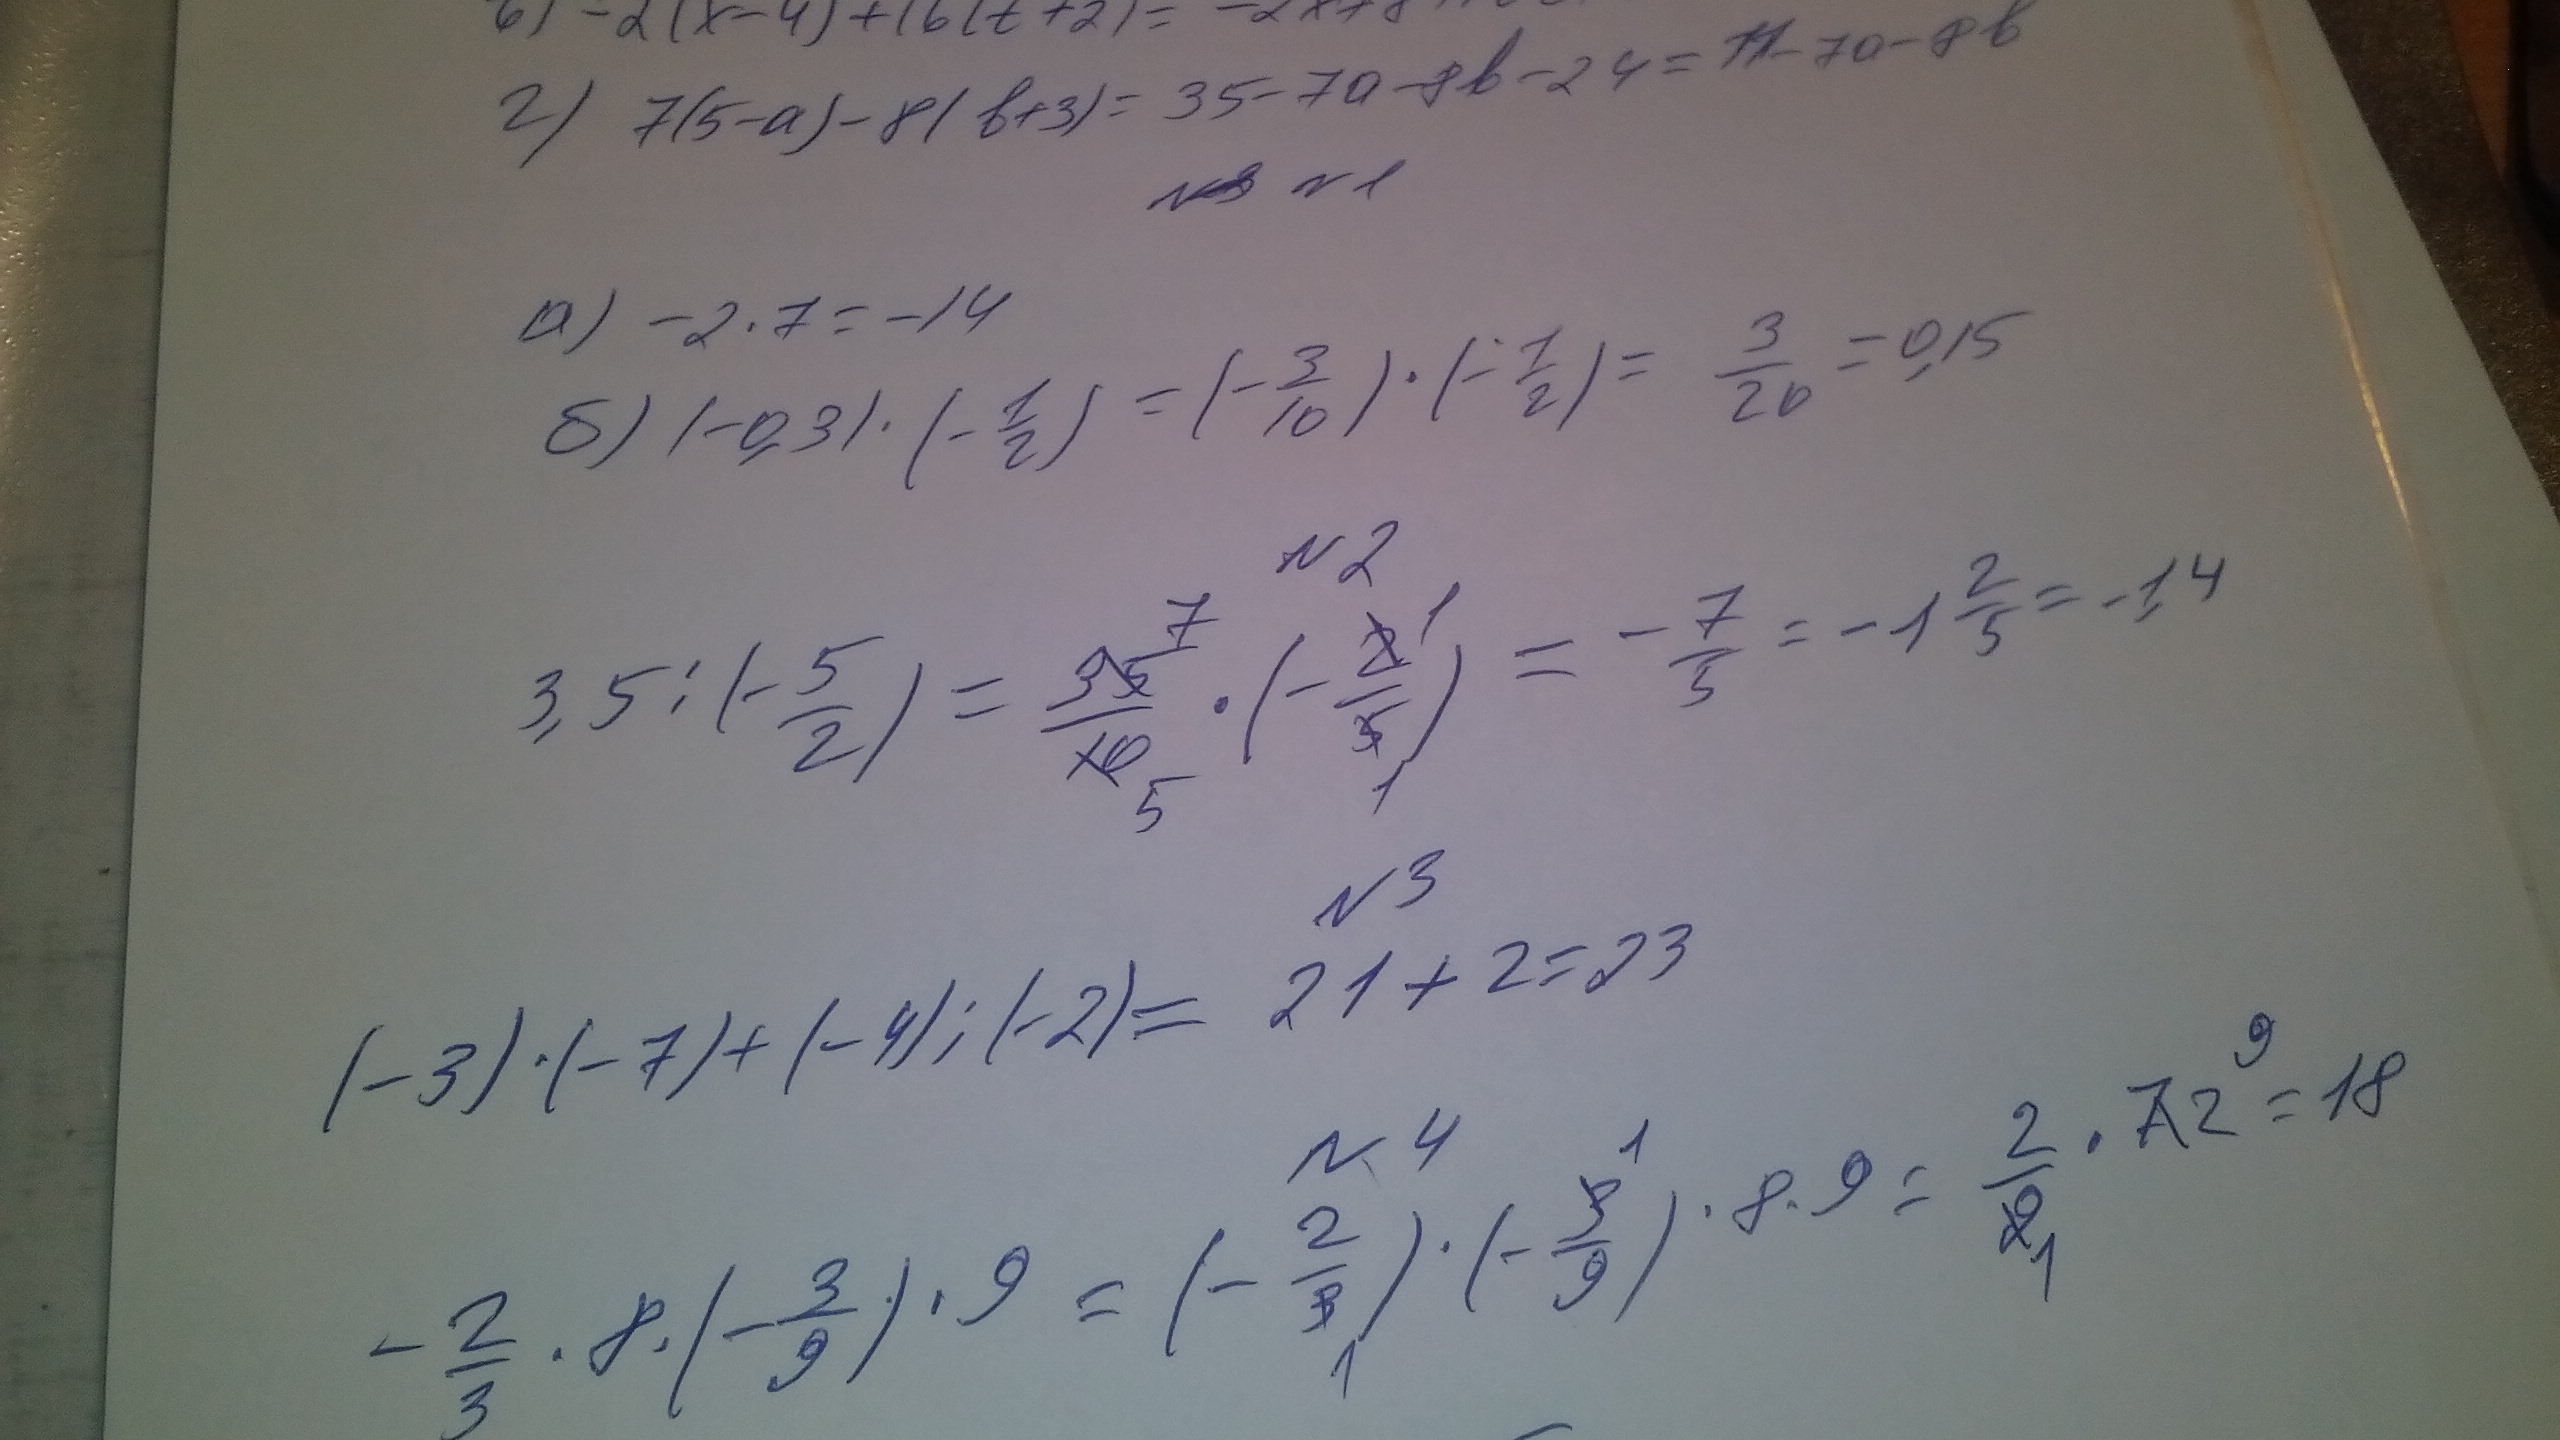 в) -2(x-4)+16(t+2)= -2x+8
г) 7(5-a)-8(b+3)= 35-7a-8b-24=11-7a-8b
N1
а) -2·7=-14
б) (-0,3)·(-1/2)=(-3/10)·(-1/2)= 3/20=0,15
N2
3,5:(-5/2)= 35/10 7 5 ·(-2/5) 1 1 = -7/5=-1 2/5=-1,4
N3
(-3)·(-7)+(-4):(-2)= 21+2=23
N4
-2/3·8·(-3/9)·9=(-2/3)·(-3/9)·8·9= 2/9·72=18
1 1 1 9